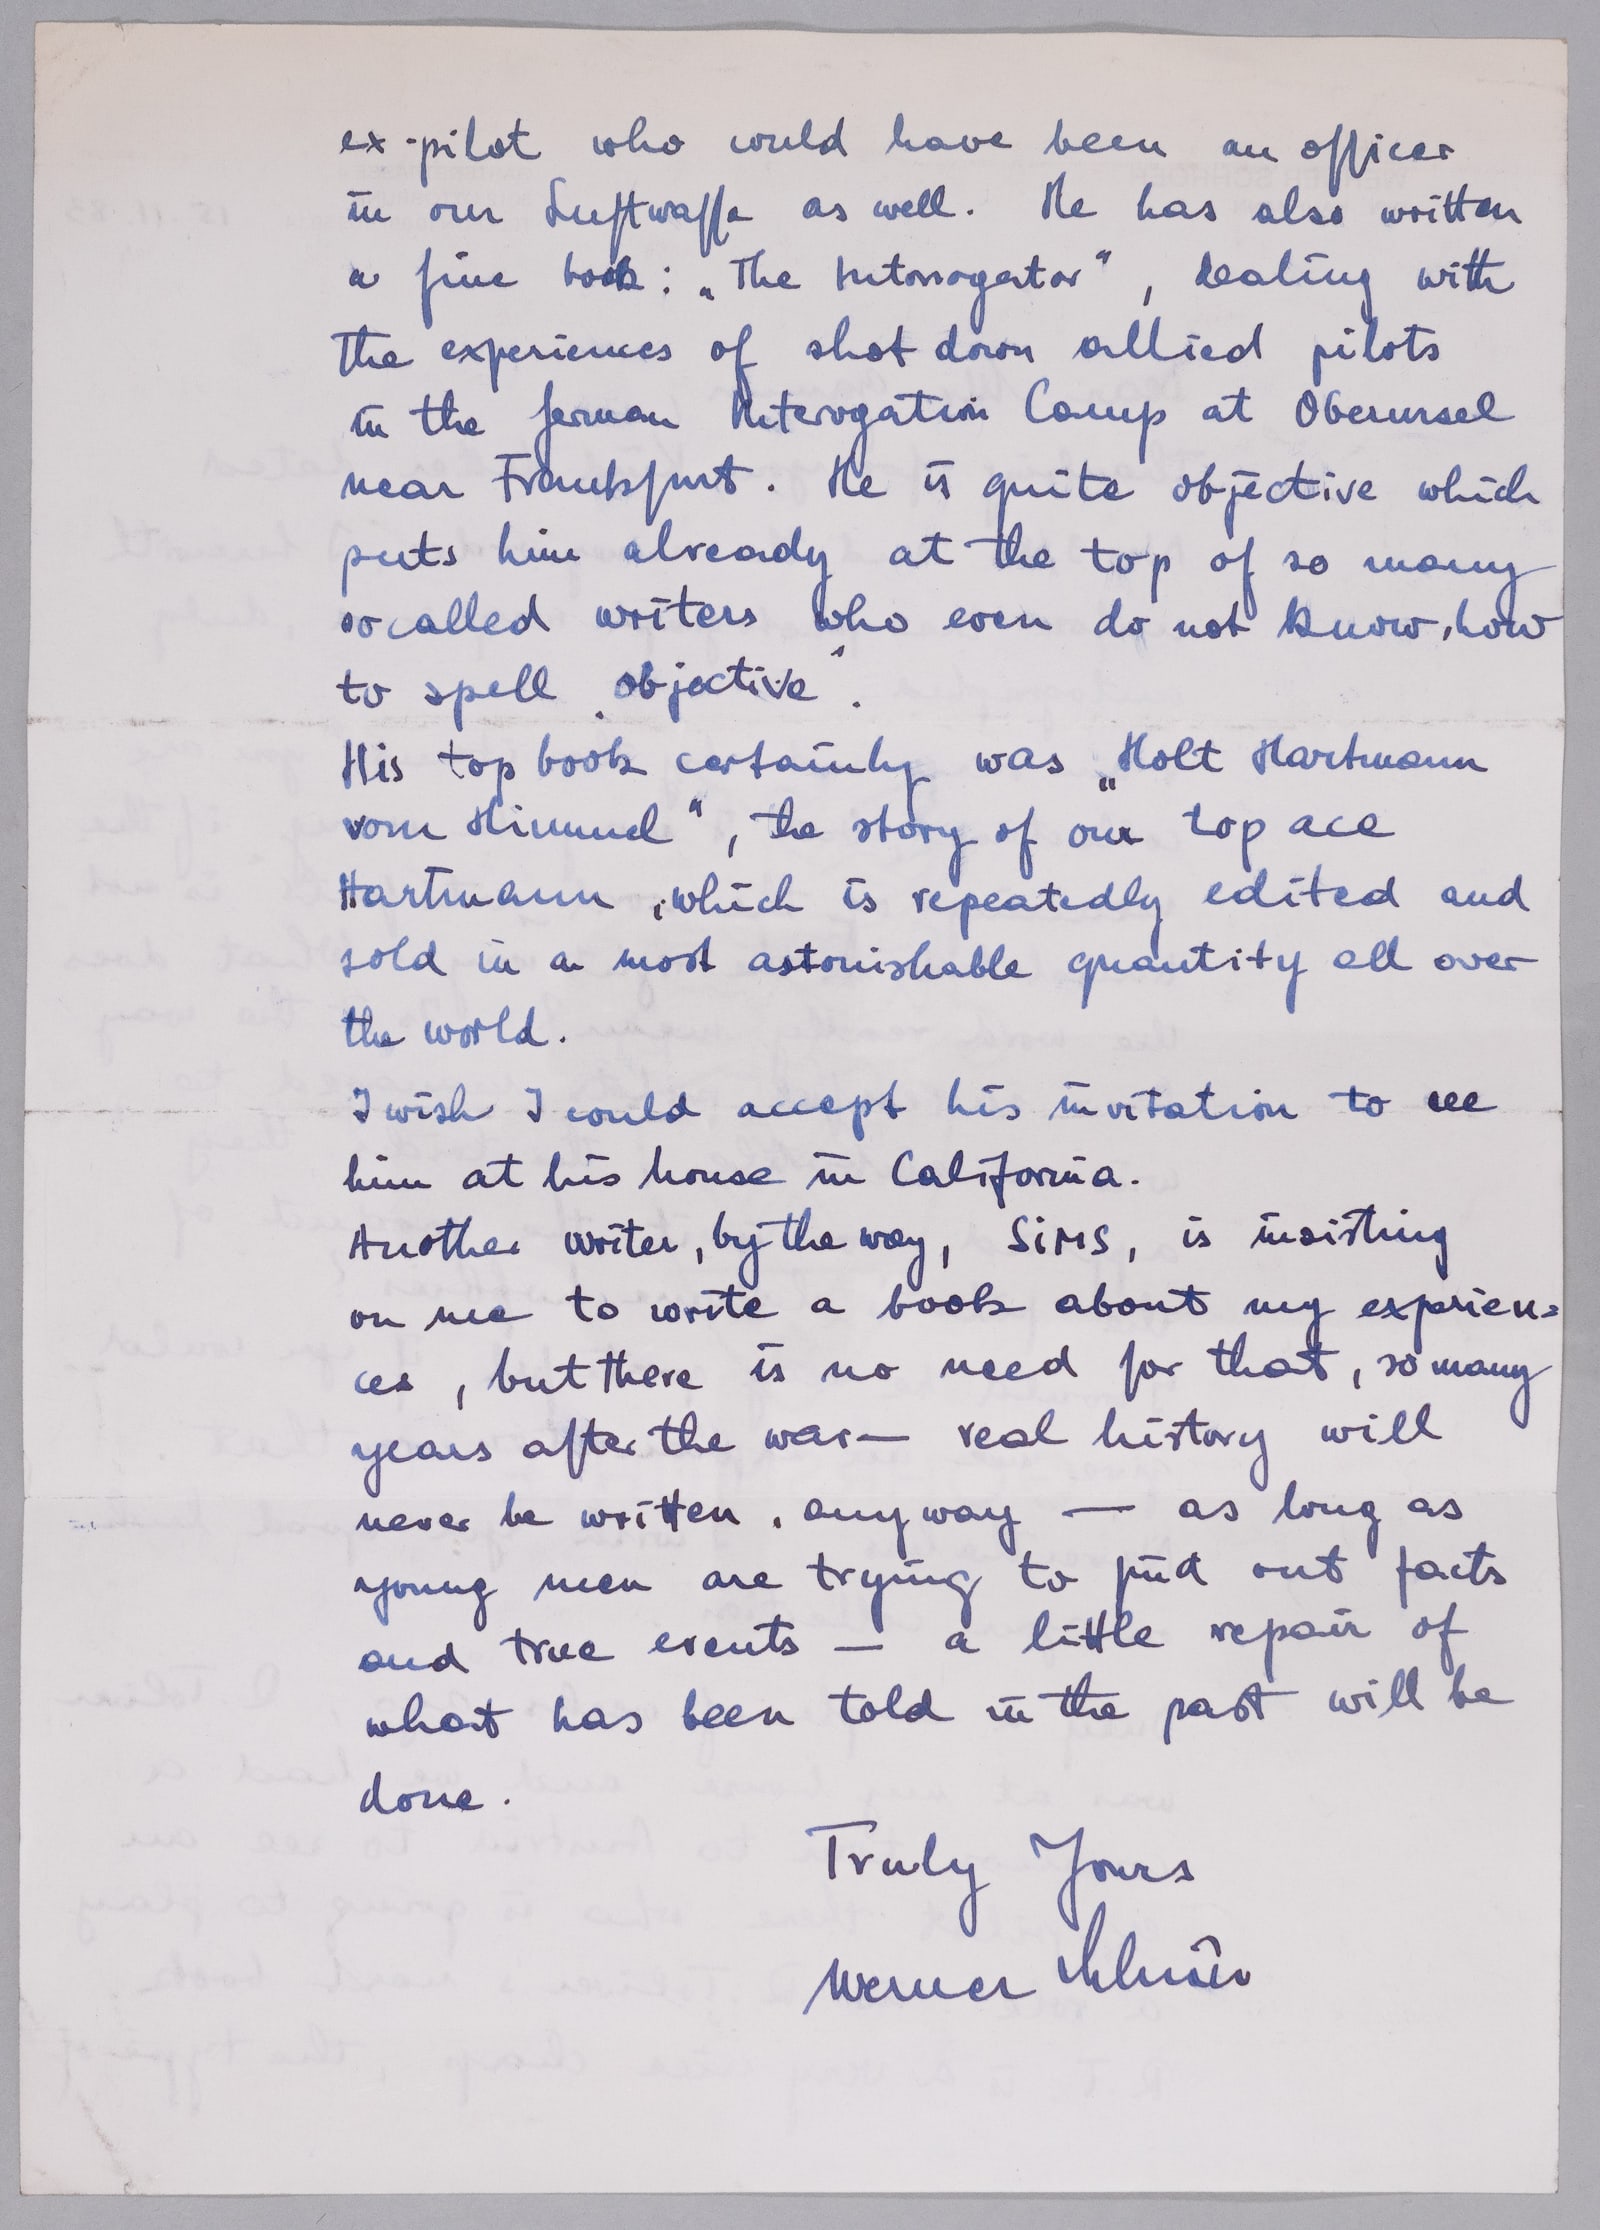 ex-pilot who would have been an officer
in our Luftwaffe as well. He has also written
a fine book: „The Interrogator“, dealing with
the experiences of shot down allied pilots
in the german Interogation Camp at Oberursel
near Frankfurt. He is quite objective which
puts him already at the top of so many
socalled writers who even do not know, how
to spell ‚objective‘.
His top book certainly was „Holt Hartmann
vom Himmel“, the story of our top ace
Hartmann, which is repeatedly edited and
sold in a most astonishable quantity all over
the world.
I wish I could accept his invitation to see
him at his house in California.
Another writer, by the way, SIMS, is insisting
on me to write a book about my experien=
ces, but there is no need for that, so many
years after the war — real history will
never be written, anyway — as long as
young men are trying to find out facts
and true events — a little repair of
what has been told in the past will be
done.
Truly Yours
Werner